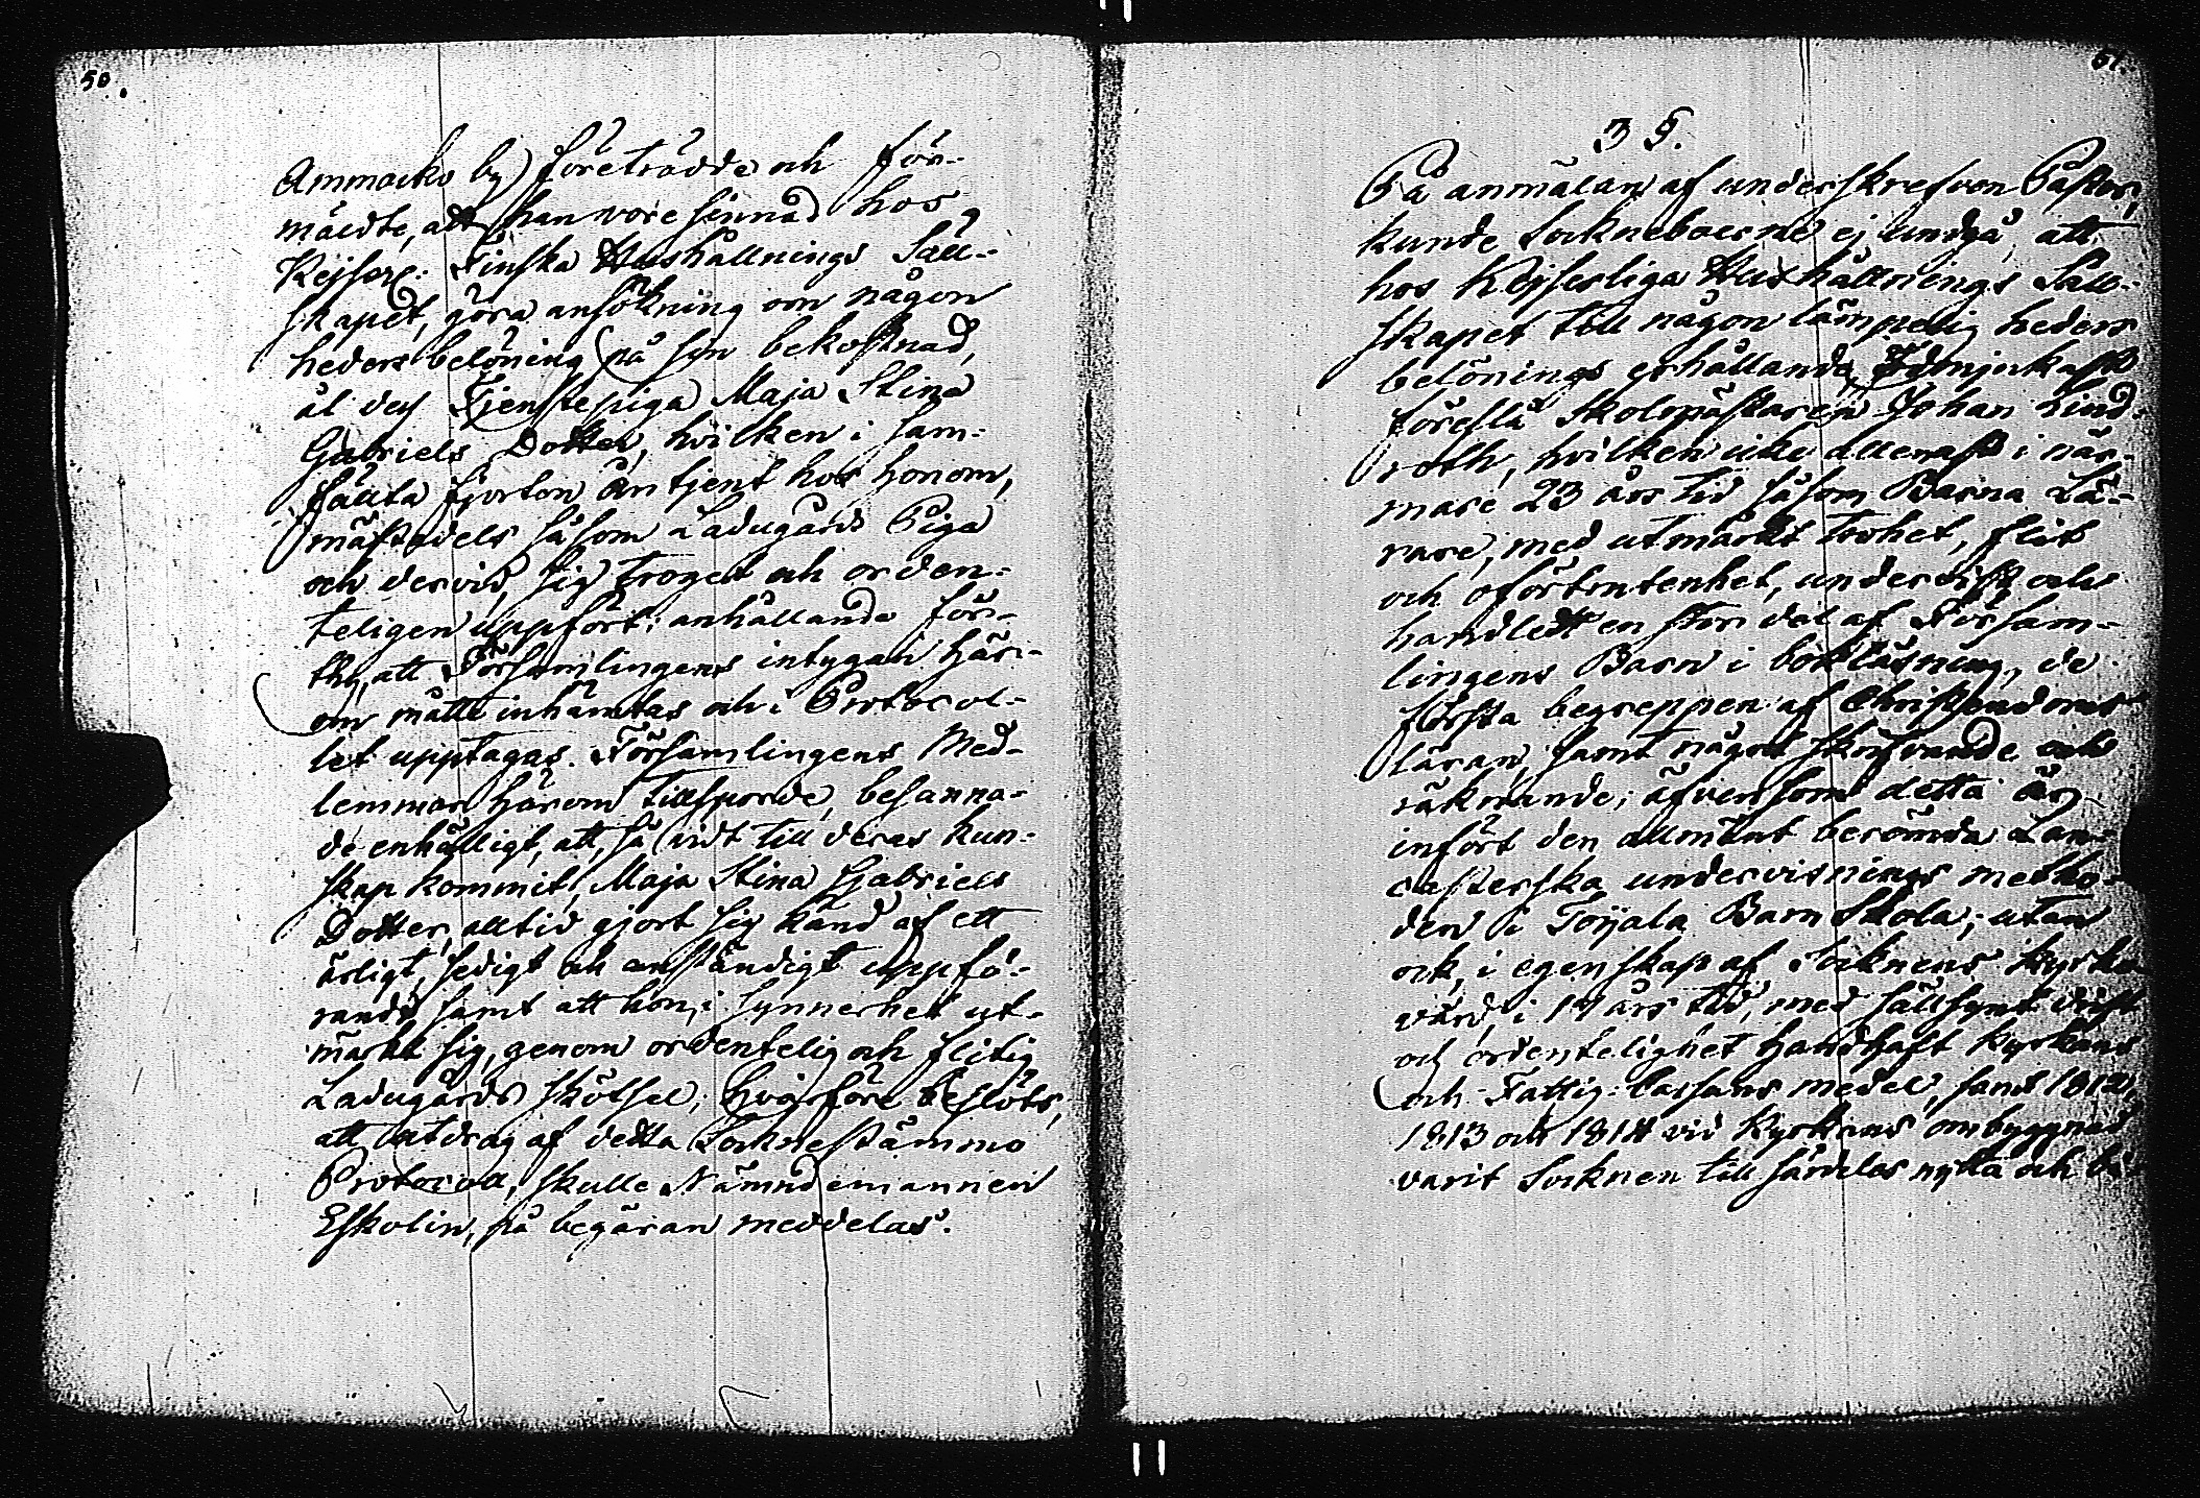 50.
Ammacko by) företrädde och för-
mäldte, att han vore sinnad hos
Kejserl: Finska Hushållnings Säll-
skapet, göra ansökning om någon
hedersbelöning på sin bekostnad,
åt dess Tjenstepiga Maja Stina
Gabriels Dotter, hvilken i sam-
fällta fjorton år tjent hos honom,
mästadels såsom Ladugårds Piga
och dervid, sig troget och orden-
teligen uppfört; anhållande för-
thy, att Församlingens intygan här-
om måtte inhämtas och i Protocol-
let upptagas. Församlingens Med-
lemmar härom tillsporde, besanna-
de enhälligt, att, så vidt till deras kun-
skap kommit, Maja Stina Gabriels
Dotter, alltid gjort sig känd af ett
ärligt, sedigt och anständigt uppfö-
rande samt att hon, i synnerhet ut-
märkt sig, genom ordentelig och flitig
Ladugårds skötsel; hvarföre beslöts,
att utdrag af detta Sockenstämmo
Protocoll, skulle Nämndemannen
Eskolin, på begäran meddelas.
51.
3 §.
På anmälan af underskrefven Pastor,
kunde Sockneboerne ej undgå, att
hos Kejserliga Hushållnings Säll-
skapet till någon lämpelig heders
belönings erhållande, Ödmjukast
föreslå Skolmästaren Johan Lind-
roth, hvilken icke allenast i när-
mare 23 års tid såsom Barna Lä-
rare, med utmärkt trohet, flit
och oförtrutenhet, undervist och
handledt en stor del af Försam-
lingens Barn i bokläsning, de
första begreppen af Christendoms
läran, samt något skrifvande och
räknande; äfvensom detta år
infört den allmänt berömda Lan-
casterska undervisnings metho-
den i Toijala Barn Skola; utan
ock, i egenskap af Socknens Kyrko
värd, i 19 års tid, med sällsynt drift
och ordentelighet handhaft Kyrkans
och Fattig-cassans medel, samt 1812,
1813 och 1814 vid Kyrkans ombyggnad
varit Socknen till särdeles nytta och bi-